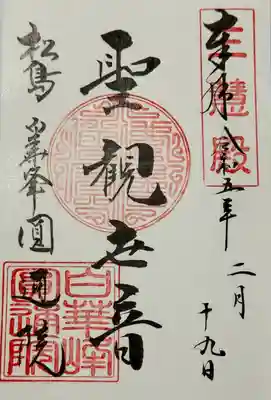 三慧殿
奉拝 令和五年
二月
十九日
聖観世音
松島 白華峰 圓通院
白華峰
圓通院